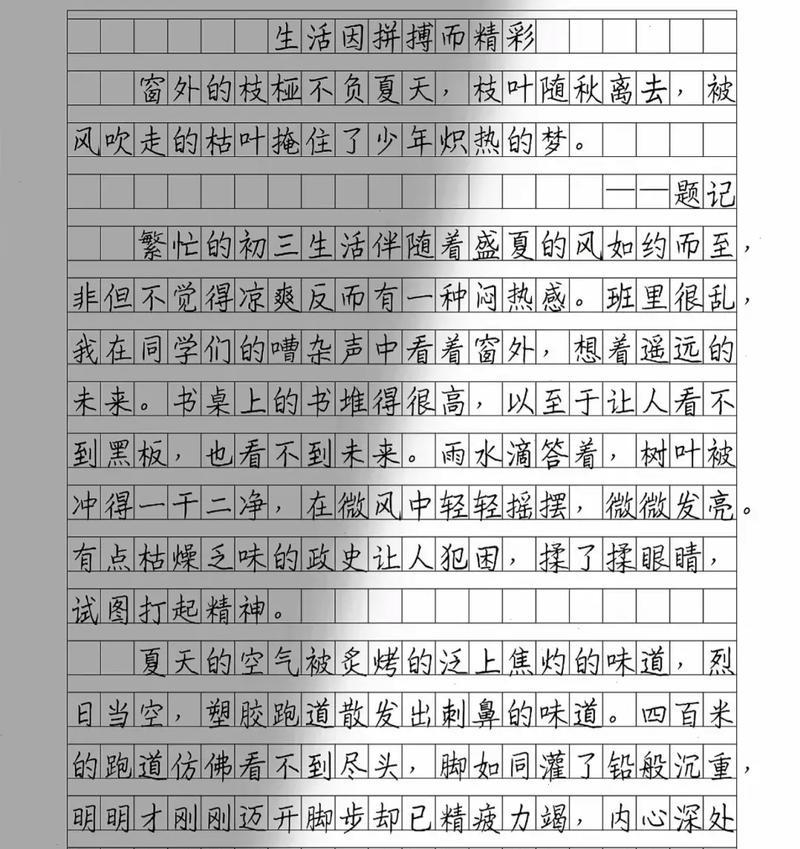 生活因拼搏而精彩
窗外的枝桠不负夏天，枝叶随秋离去，被
风吹走的枯叶掩住了少年炽热的梦。
——题记
繁忙的初三生活伴随着盛夏的风如约而至，
非但不觉得凉爽反而有一种闷热感。班里很乱，
我在同学们的嘈杂声中看着窗外，想着遥远的
未来。书桌上的书堆得很高，以至于让人看不
到黑板，也看不到未来。雨水滴答着，树叶被
冲得一干二净，在微风中轻轻摇摆，微微发亮。
有点枯燥乏味的政史让人犯困，揉了揉眼睛，
试图打起精神。
夏天的空气被炙烤的泛上焦灼的味道，烈
日当空，塑胶跑道散发出刺鼻的味道。四百米
的跑道仿佛看不到尽头，脚如同灌了铅般沉重，
明明才刚刚迈开脚步却已精疲力竭，内心深处